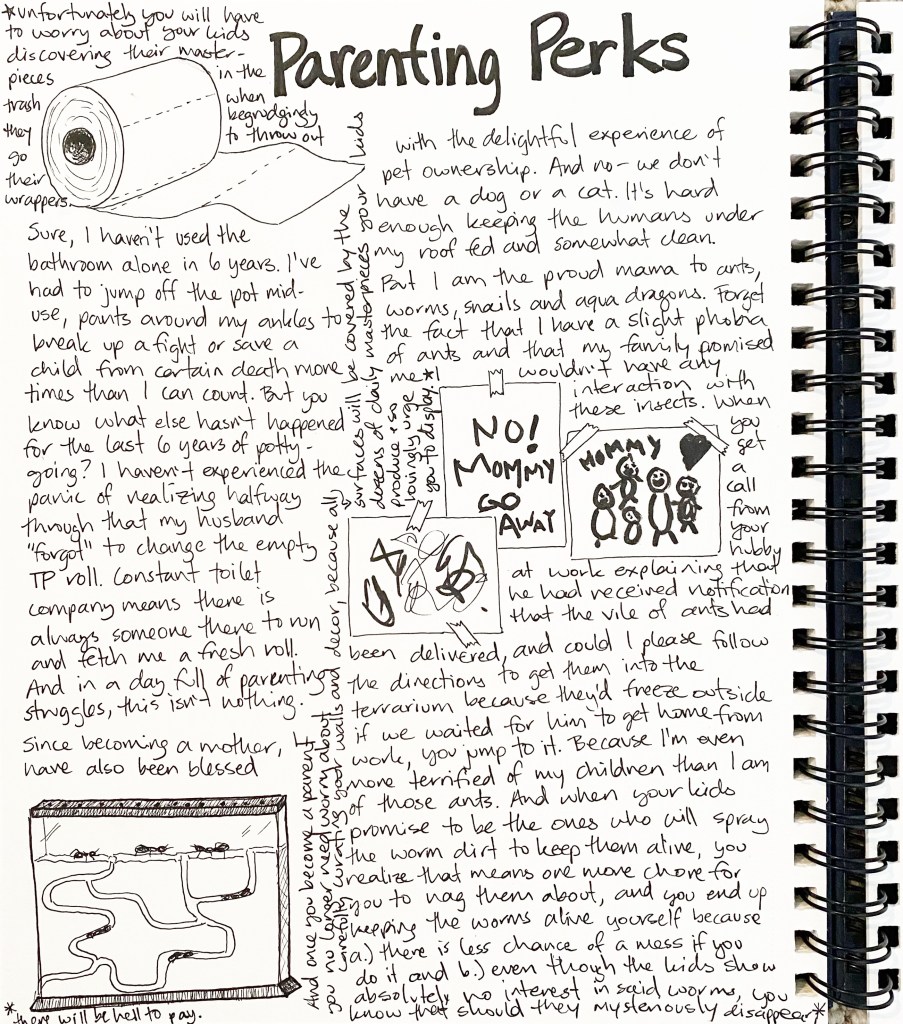 Parenting Perks
Sure, I haven't used the
bathroom alone in 6 years. I've
had to jump off the pot mid-
use, pants around my ankles to
break up a fight or save a
child from certain death more
times than I can count. But you
know what else hasn't happened
for the last 6 years of potty-
going? I haven't experienced the
panic of realizing halfway
through that my husband
"forgot" to change the empty
TP roll. Constant toilet
company means there is
always someone there to run
and fetch me a fresh roll.
And in a day full of parenting
struggles, this isn't nothing.
Since becoming a mother, I
have also been blessed
with the delightful experience of
pet ownership. And no- we don't
have a dog or a cat. It's hard
enough keeping the humans under
my roof fed and somewhat clean.
But I am the proud mama to ants,
worms, snails and aqua dragons. Forget
the fact that I have a slight phobia
of ants and that my family promised
me I wouldn't have any
interaction with
these insects. When
you
get
a
call
from
your
hubby
at work explaining that
he had received notification
that the vile of ants had
been delivered, and could I please follow
the directions to get them into the
terrarium because they'd freeze outside
if we waited for him to get home from
work, you jump to it. Because I'm even
more terrified of my children than I am
of those ants. And when your kids
promise to be the ones who will spray
the worm dirt to keep them alive, you
realize that means one more chore for
you to nag them about, and you end up
keeping the worms alive yourself because
a.) there is less chance of a mess if you
do it and b.) even though the kids show
absolutely no interest in said worms, you
know that should they mysteriously disappear*
*there will be hell to pay.
And once you become a parent
you no longer need worry about
carefully curating your walls and decor, because all
surfaces will be covered by the
dozens of daily masterpieces your kids
produce + so
lovingly urge
you to display.*
*unfortunately you will have
to worry about your kids
discovering their master-
pieces in the
trash when
they begrudgingly
go to throw out
their
wrappers.
NO!
MOMMY
GO
AWAY
MOMMY